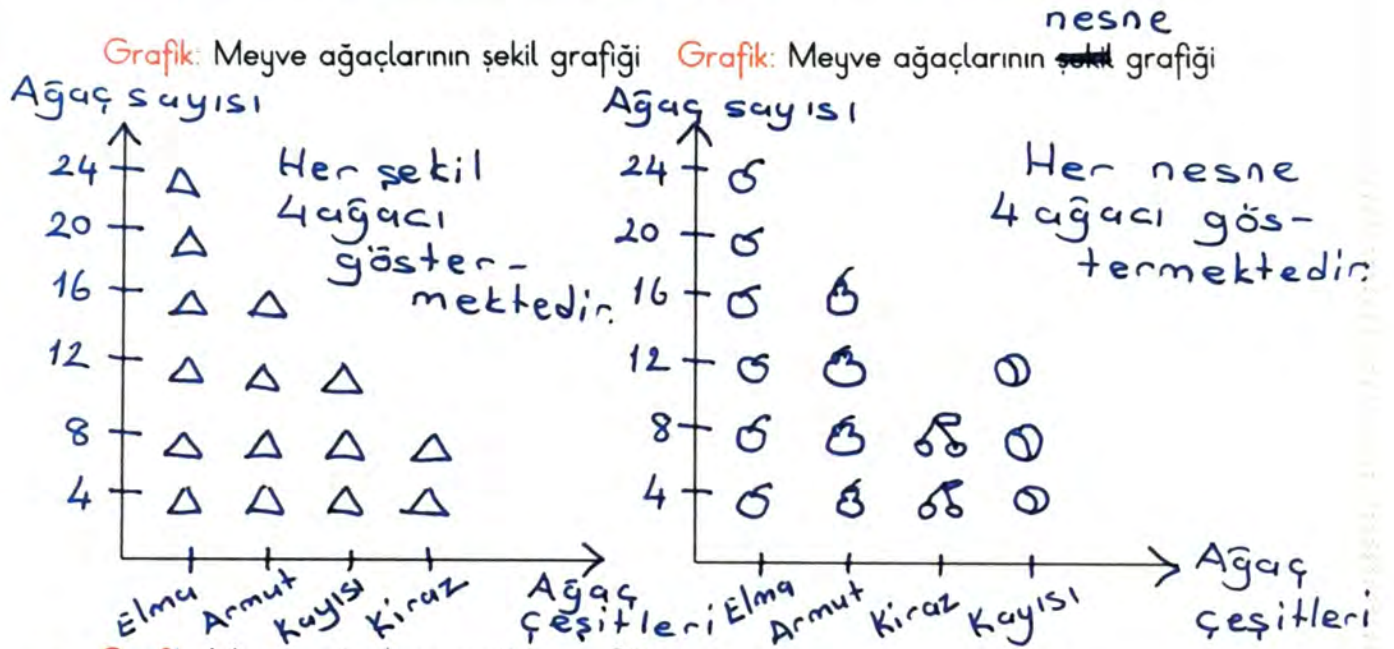 Grafik: Meyve ağaçlarının şekil grafiği
Ağaç sayısı
24
20
16
12
8
4
Her şekil
4 ağacı
göster-
mektedir.
Elma Armut Kayısı Kiraz
Ağaç
çeşitleri
nesne
Grafik: Meyve ağaçlarının şekil grafiği
Ağaç sayısı
24
20
16
12
8
4
Her nesne
4 ağacı gös-
termektedir.
Elma Armut Kiraz Kayısı
Ağaç
çeşitleri